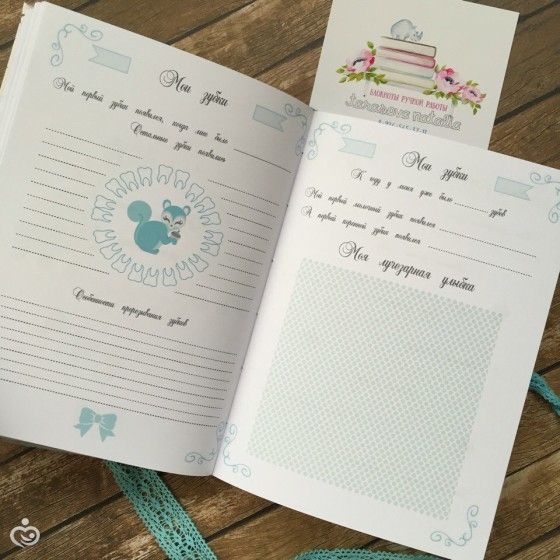 Мои зубки
Мой первый зубик появился, когда мне было
Остальные зубки появились
Особенности прорезывания зубков
БЛОКНОТЫ РУЧНОЙ РАБОТЫ
Tarasova natalia
Мои зубки
К году у меня уже было зубов
Мой первый молочный зубик появился
А первый коренной зубик появился
Моя лучезарная улыбка